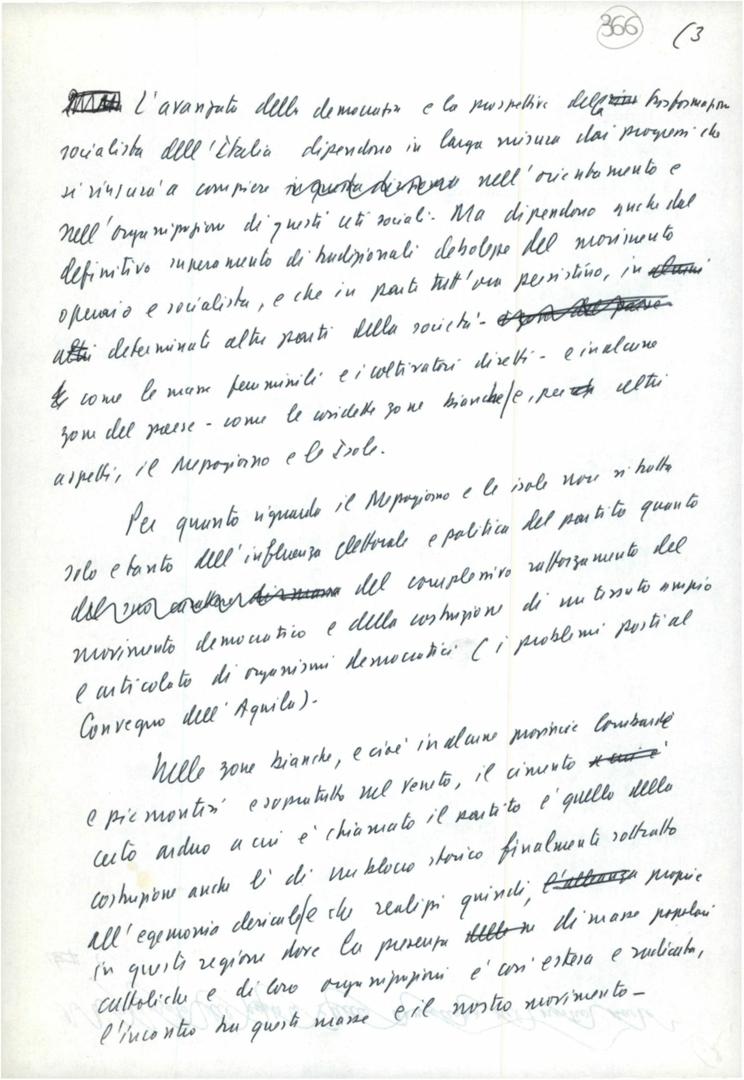 366 (3
L'avanzata della democrazia e la prospettiva della trasformazione
socialista dell'Italia dipendono in larga misura dai progressi che
si riuscirà a compiere in questa direzione nell'orientamento e
nell'organizzazione di questi ceti sociali. Ma dipendono anche dal
definitivo superamento di tradizionali debolezze del movimento
operaio e socialista, e che in parte tutt'ora persistono, in alcuni
altri determinati altre parti della società - e zone del paese
come le masse femminili e i coltivatori diretti - e in alcune
zone del paese - come le cosidette zone bianche/e, per altri
aspetti, il Mezzogiorno e le Isole.
Per quanto riguarda il Mezzogiorno e le isole non si tratta
solo e tanto dell'influenza elettorale e politica del partito quanto
dal suo carattere di massa del complessivo rafforzamento del
movimento democratico e della costruzione di un tessuto ampio
e articolato di organismi democratici (i problemi posti al
Convegno dell'Aquila).
Nelle zone bianche, e cioè in alcune provincie lombarde
e piemontesi e sopratutto nel Veneto, il cimento a cui è
certo arduo a cui è chiamato il partito è quello della
costruzione anche lì di un blocco storico finalmente sottratto
all'egemonia clericale/e che realizzi quindi, l'alleanza proprio
in queste regioni dove la presenza delle di masse popolari
cattoliche e di loro organizzazioni è così estesa e radicata,
l'incontro tra queste masse e il nostro movimento -